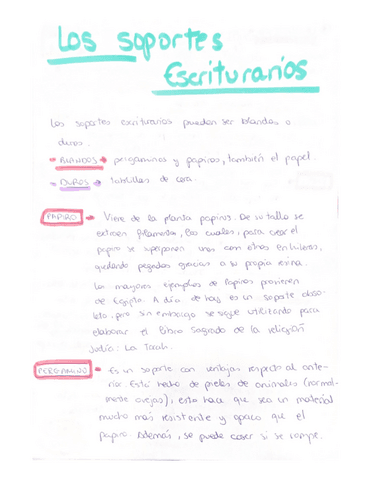 Los soportes
Escriturarios
Los soportes escriturarios pueden ser blandos o
duros.
BLANDOS → pergaminos y papiros, también el papel.
DUROS → tablillas de cera.
PAPIRO → Viene de la planta papiros. De su tallo se
extraen filamentos, los cuales, para crear el
papiro se superponen unos con otros en hileras,
quedando pegados gracias a su propia resina.
Los mayores ejemplos de Papiros provienen
de Egipto. A día de hoy es un soporte obso-
leto, pero sin embargo se sigue utilizando para
elaborar el libro sagrado de la religión
Judía: La Torah.
PERGAMINO → Es un soporte con ventajas respecto al ante-
rior. Está hecho de pieles de animales (normal-
mente ovejas), esto hace que sea un material
mucho más resistente y opaco que el
papiro. Además, se puede coser si se rompe.